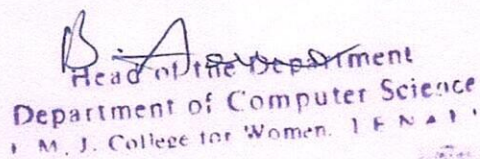 Head of the Department
Department of Computer Science
M. J. College for Women. TENALI